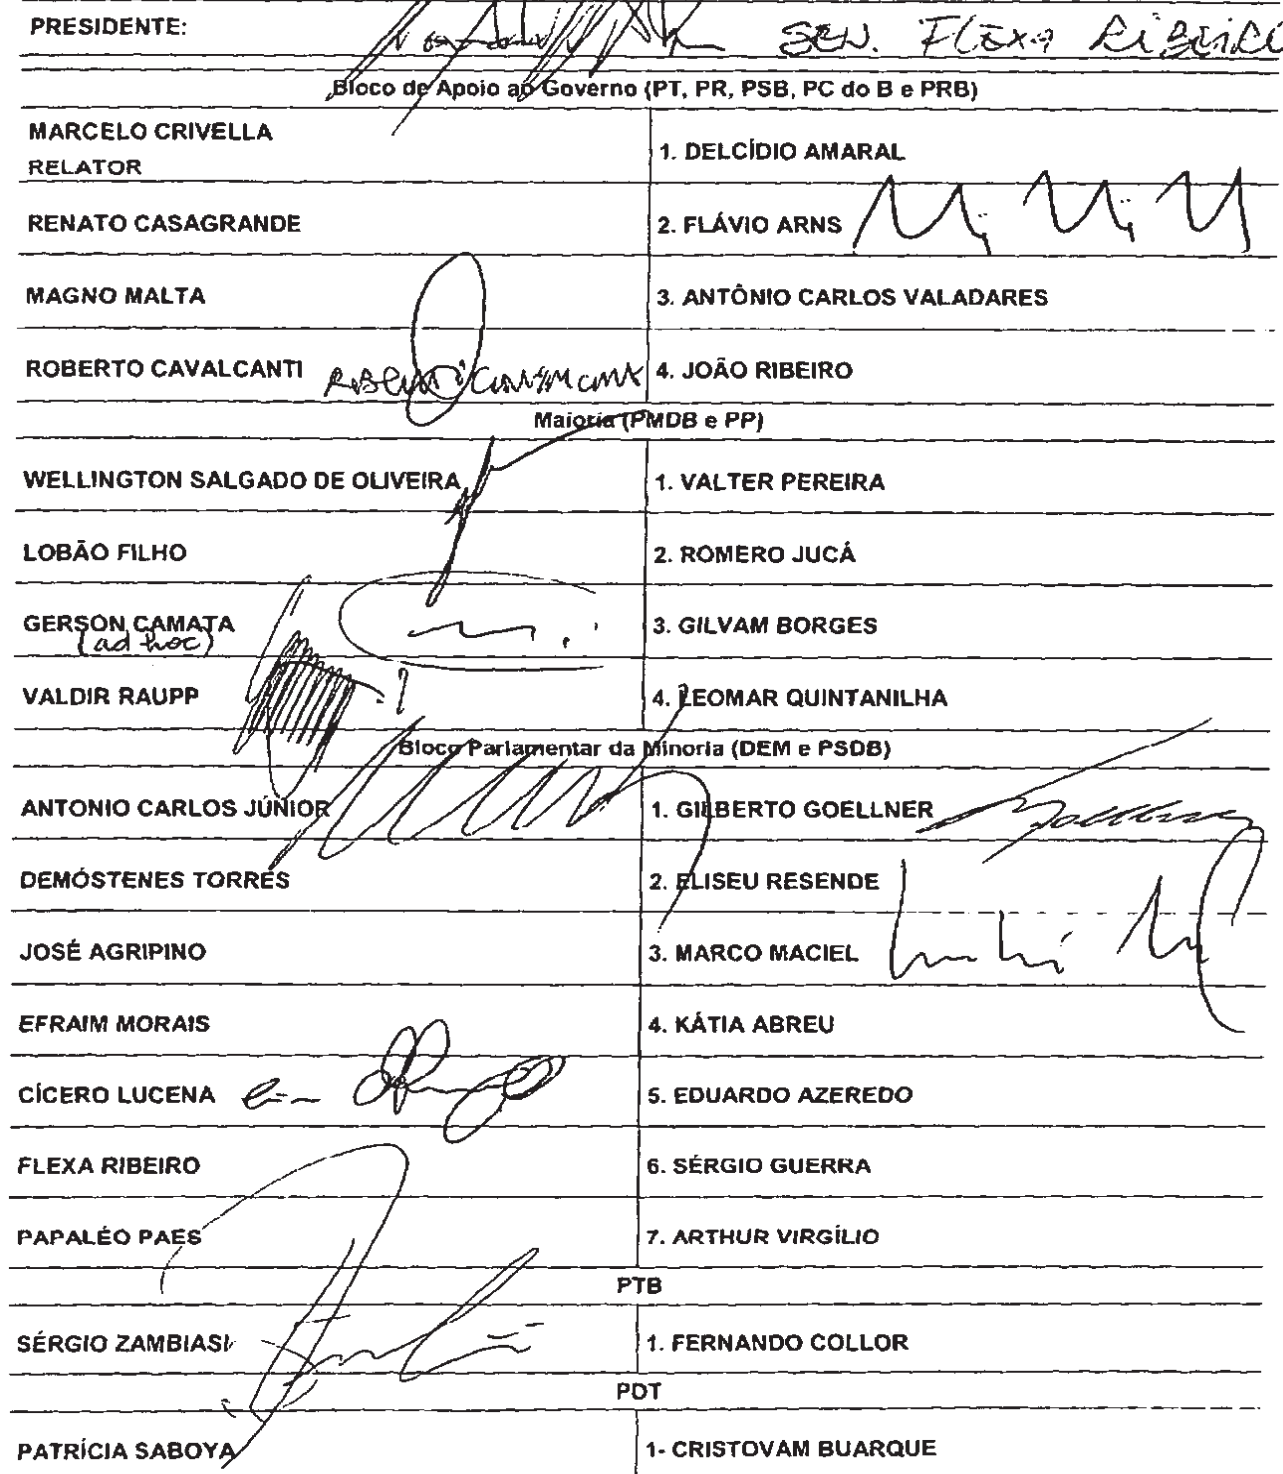 PRESIDENTE: SEN. FLEXA RIBEIRO
Bloco de Apoio ao Governo (PT, PR, PSB, PC do B e PRB)
MARCELO CRIVELLA
RELATOR
1. DELCÍDIO AMARAL
RENATO CASAGRANDE
2. FLÁVIO ARNS
MAGNO MALTA
3. ANTÔNIO CARLOS VALADARES
ROBERTO CAVALCANTI
4. JOÃO RIBEIRO
Maioria (PMDB e PP)
WELLINGTON SALGADO DE OLIVEIRA
1. VALTER PEREIRA
LOBÃO FILHO
2. ROMERO JUCÁ
GERSON CAMATA
(ad hoc)
3. GILVAM BORGES
VALDIR RAUPP
4. LEOMAR QUINTANILHA
Bloco Parlamentar da Minoria (DEM e PSDB)
ANTONIO CARLOS JÚNIOR
1. GILBERTO GOELLNER
DEMÓSTENES TORRES
2. ELISEU RESENDE
JOSÉ AGRIPINO
3. MARCO MACIEL
EFRAIM MORAIS
4. KÁTIA ABREU
CÍCERO LUCENA
5. EDUARDO AZEREDO
FLEXA RIBEIRO
6. SÉRGIO GUERRA
PAPALÉO PAES
7. ARTHUR VIRGÍLIO
PTB
SÉRGIO ZAMBIASI
1. FERNANDO COLLOR
PDT
PATRÍCIA SABOYA
1- CRISTOVAM BUARQUE